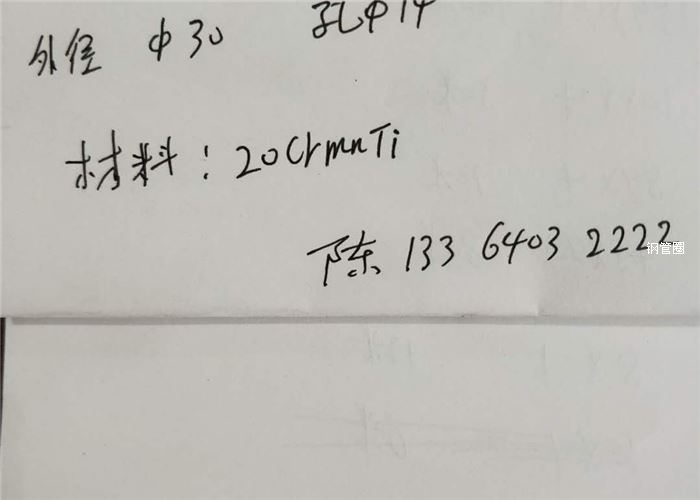 外径 φ30 孔φ14
材料：20CrmnTi
陈 133 6403 2222
钢管圈